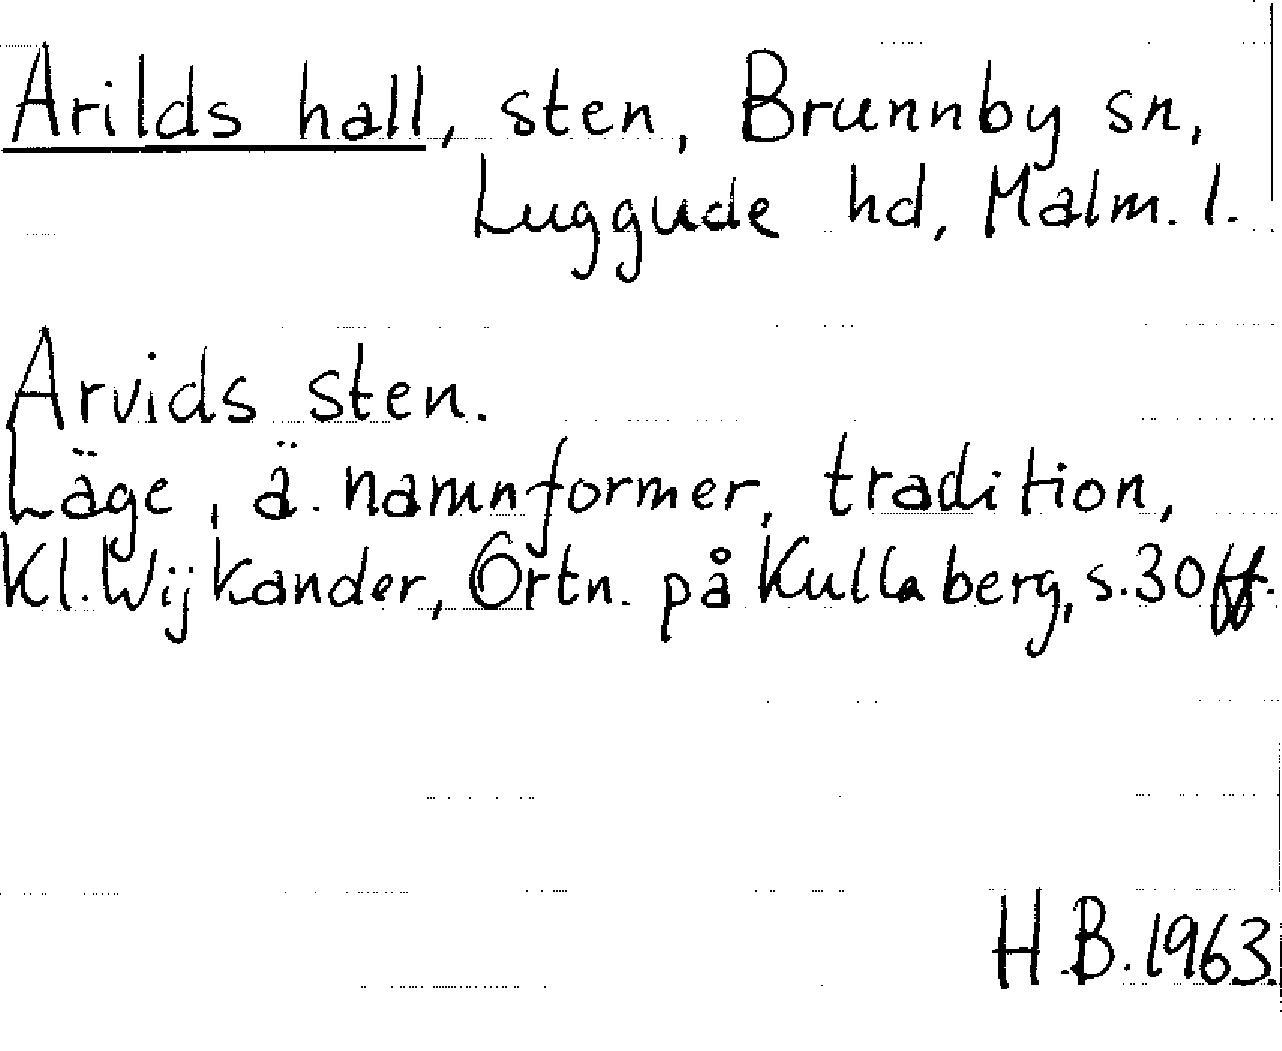 Arilds hall, sten, Brunnby sn,
Luggude hd, Malm. l.
Arvids sten.
Läge, ä. namnformer, tradition,
Kl. Wijkander, Ortn. på Kullaberg, s. 30 ff.
H.B. 1963.